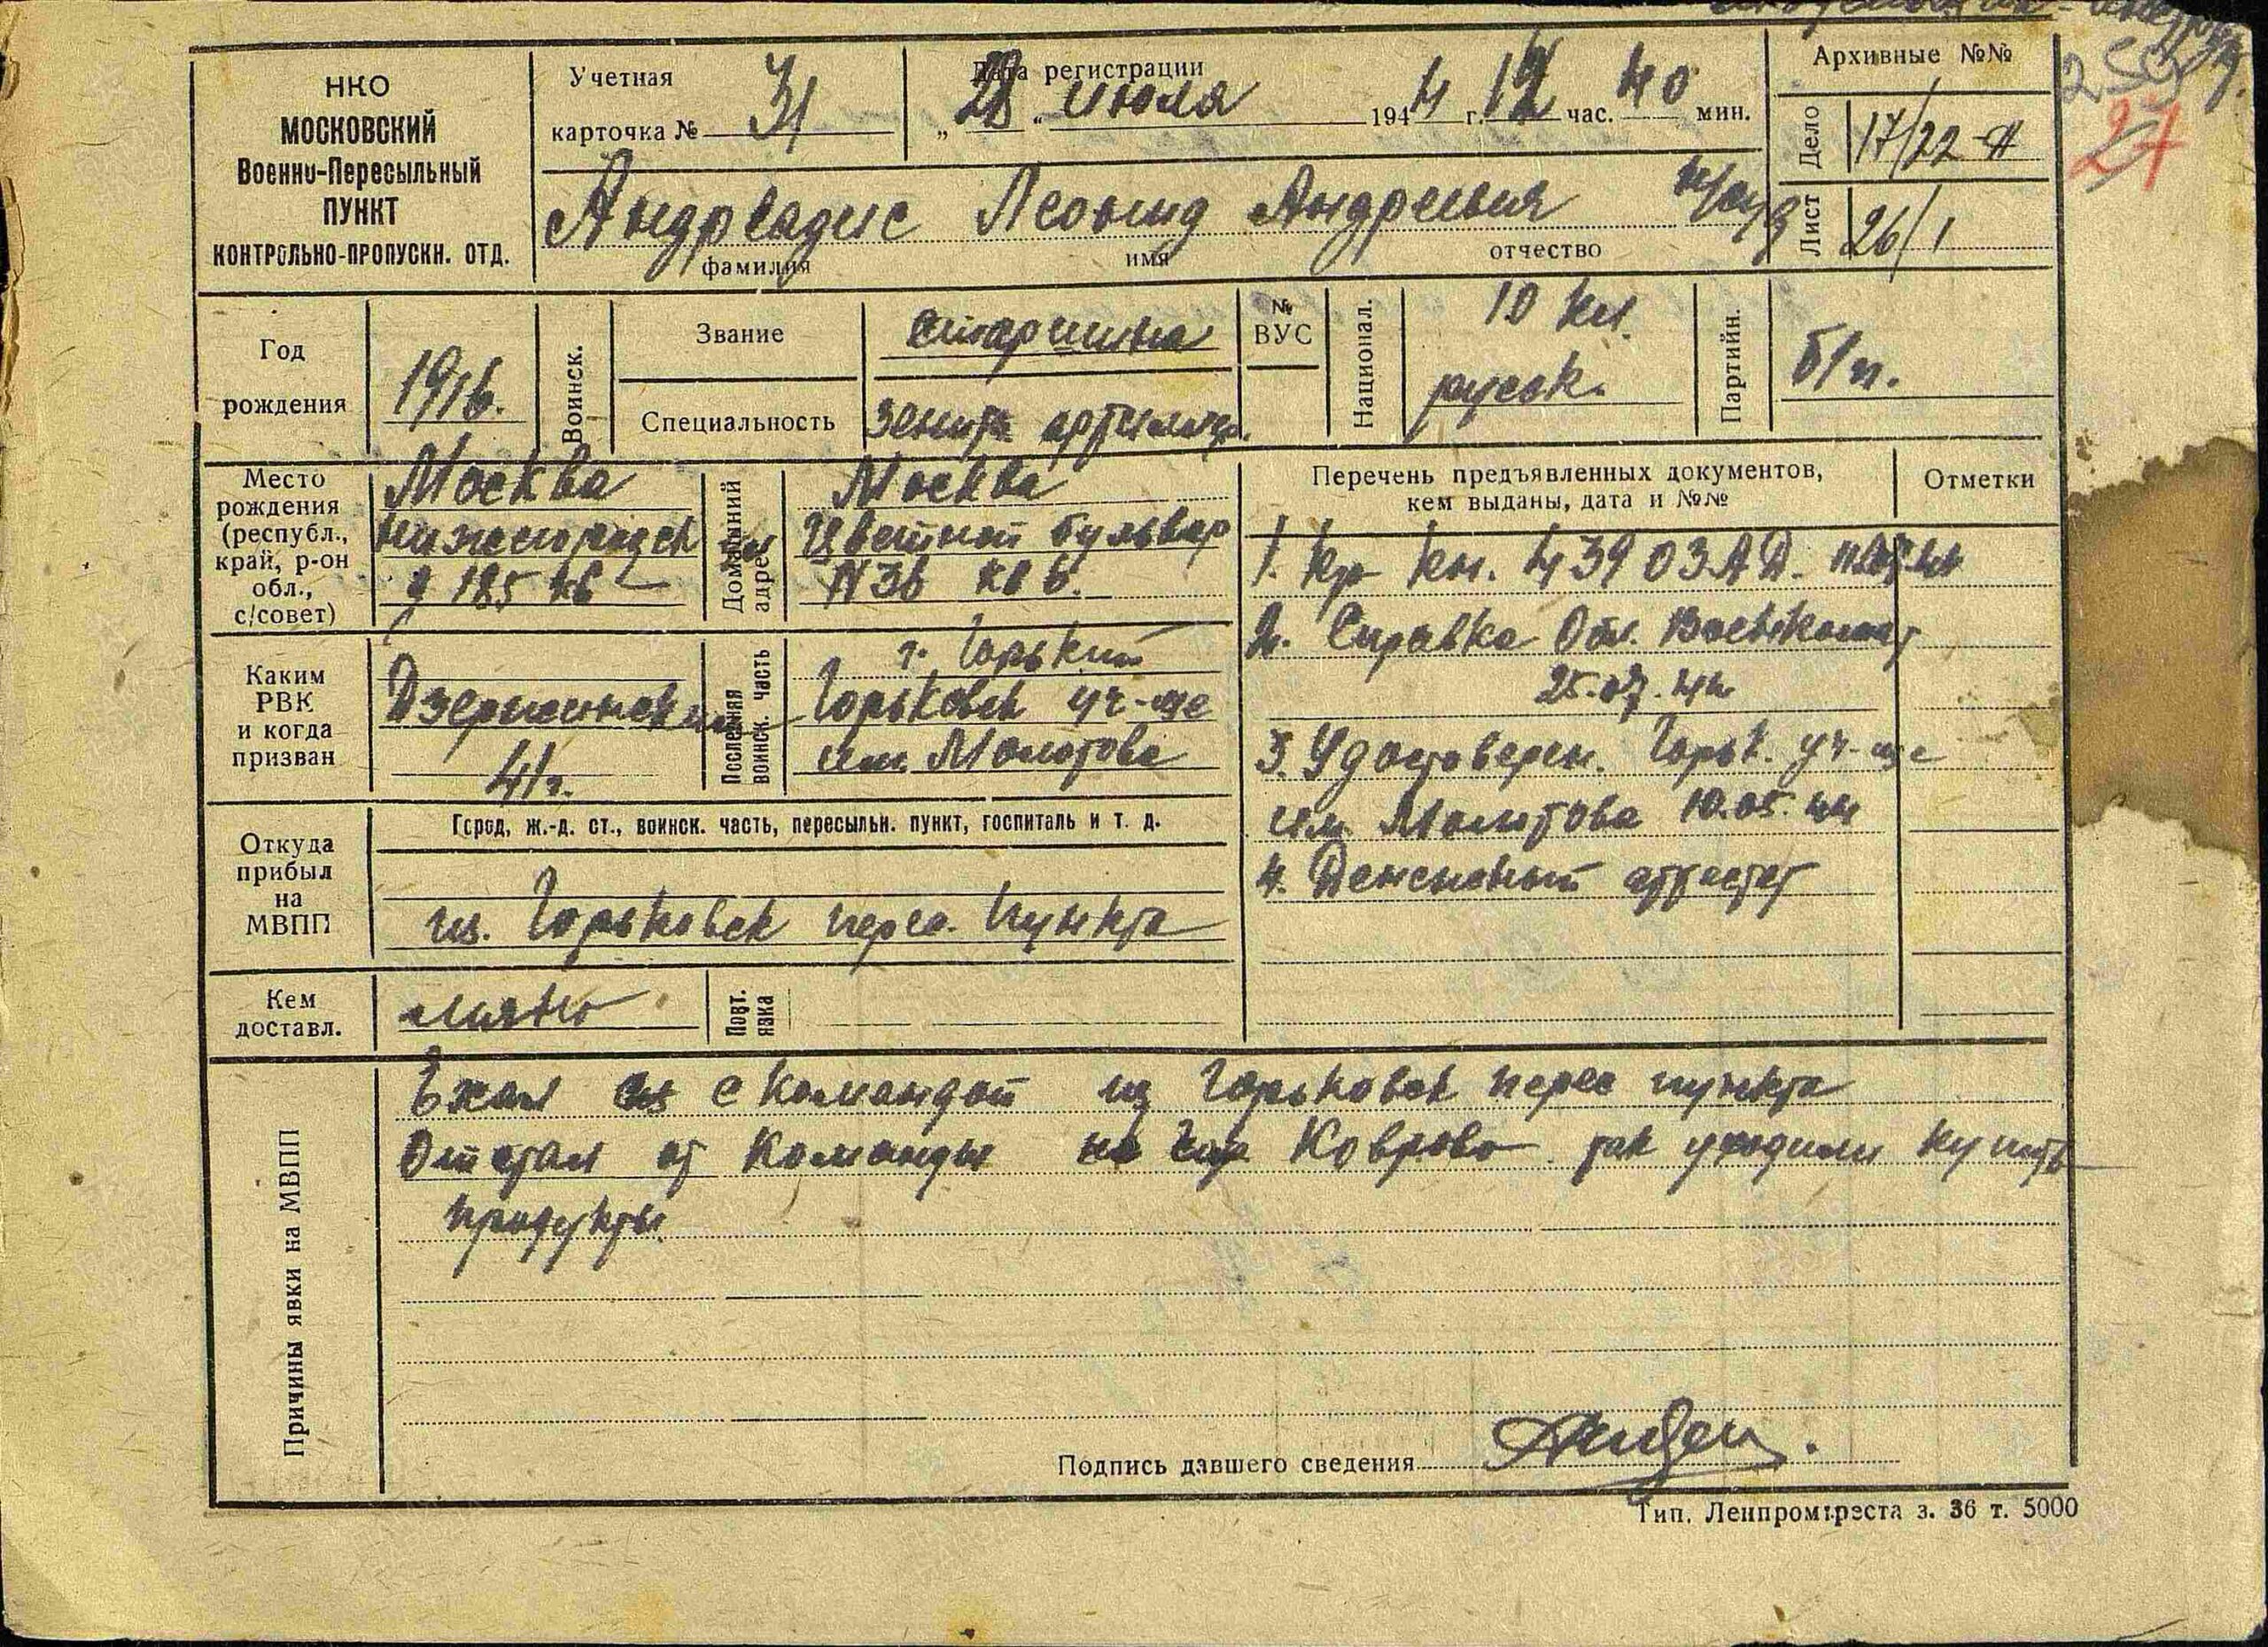 НКО
МОСКОВСКИЙ
Военно-Пересыльный
ПУНКТ
КОНТРОЛЬНО-ПРОПУСКН. ОТД.
Учетная
карточка № 31
Дата регистрации
„28“ июля 1944 г. 12 час. 40 мин.
Архивные №№
Дело 17/22-П
Лист 26/1
27
Андреадис Леонид Андреевич
фамилия имя отчество
Год
рождения
1916.
Воинск.
Звание
старшина
Специальность
зенитн артиллер.
№
ВУС
Национал.
10 кл.
русск.
Партийн.
б/п.
Место
рождения
(республ.,
край, р-он
обл.,
с/совет)
Москва
Нижегородск
д 185 кв
Домашний
адрес
Москва
Цветной бульвар
N 3в кв 6.
Перечень предъявленных документов,
кем выданы, дата и №№
Отметки
1. Кр кн. 43903 АД.
2. Справка Обл. Военкомат
25.07.44
3. Удостоверен. Горьк. уч-ще
им Молотова 10.05.44
4. Денежный аттестат
Каким
РВК
и когда
призван
Дзержинским
41 г.
Последняя
воинск. часть
г. Горький
Горьковск уч-ще
им. Молотова
Откуда
прибыл
на
МВПП
Город, ж.-д. ст., воинск. часть, пересыльн. пункт, госпиталь и т. д.
из. Горьковск перес. пункта
Кем
доставл.
лично
Повт.
явка
Причины явки на МВПП
Ехал с командой из Горьковск перес пункта
Отстал от команды на Коврово так уходили купить
продукты.
Подпись давшего сведения
Тип. Ленпромтреста з. 36 т. 5000